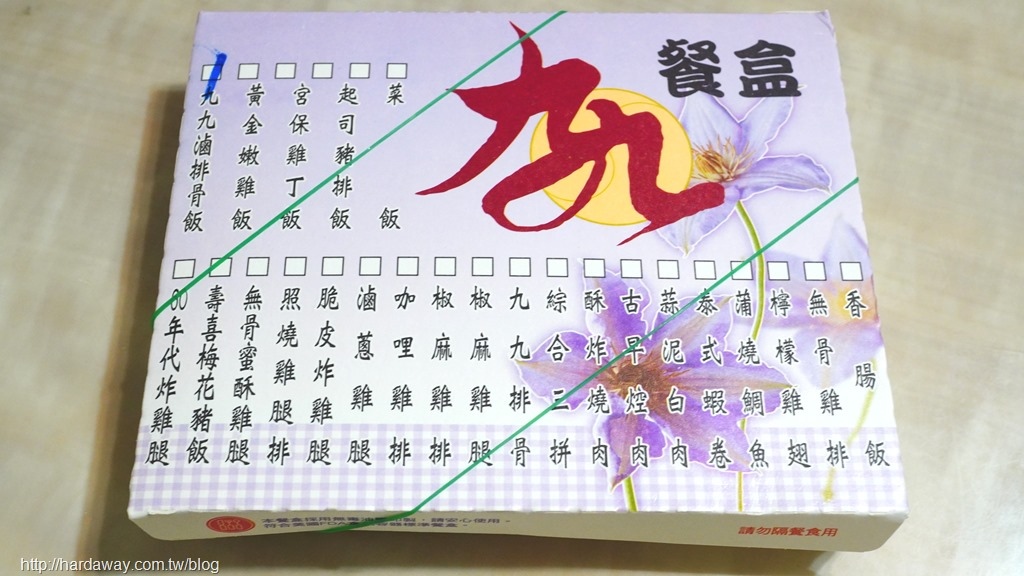 餐盒
九九
九九滷排骨飯
黃金嫩雞飯
宮保雞丁飯
起司豬排飯
菜飯
80年代炸雞腿
壽喜梅花豬飯
無骨蜜酥雞腿
照燒雞腿排
脆皮炸雞腿
滷蔥雞腿
咖哩雞排
椒麻雞排
椒麻雞腿
九九排骨
綜合三拼
酥炸燒肉
古早焢肉
蒜泥白肉
泰式蝦卷
蒲燒鯛魚
檸檬雞翅
無骨雞排
香腸飯
請勿隔餐食用
http://hardaway.com.tw/blog